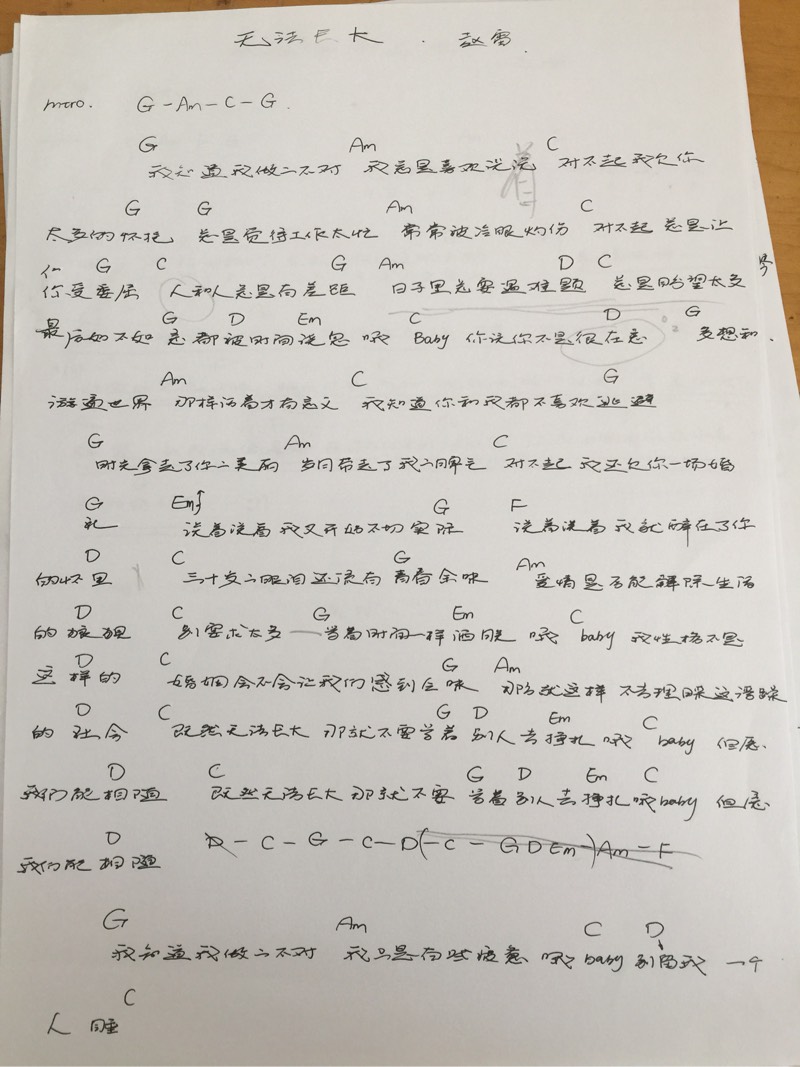 无法长大 . 赵雷.
intro. G - Am - C - G.
G Am C
我知道我做的不对 我总是喜欢说谎 对不起我欠你
着
G G Am C
太多的怀抱 总是觉得工作太忙 常常被冷眼灼伤 对不起 总是让
G C G Am D C
你受委屈 人和人总是有差距 日子里总要遇难题 总是盼望太多
G D Em C D G
最后如不如意都被时间说息 哦 Baby 你说你不是很在意 多想和
Am C G
游遍世界 那样活着才有意义 我知道你和我都不喜欢逃避
G Am C
时光拿走了你的美丽 岁月带走了我的脾气 对不起 我还欠你一场婚
G Em G F
礼 说着说着我又开始不切实际 说着说着我就醉在了你
D C G Am
的怀里 三十岁的眼泪还没有青春余味 爱情是否能解除生活
D C G Em C
的狼狈 别要求太多 当着时间一样洒脱 哦 baby 我性格不是
D C G Am
这样的 婚姻会不会让我们感到乏味 那么就这样 不去理睬这潦躁
D C G D Em C
的社会 既然无法长大 那就不要学着别人去挣扎 哦 baby 但愿
D C G D Em C
我们能相随 既然无法长大 那就不要学着别人去挣扎 哦 baby 但愿
D D - C - G - C - D (- C - G D Em -) Am - F
我们能相随
G Am C D
我知道我做的不对 我只是有些疲惫 哦 baby 别留我一个
C
人 睡